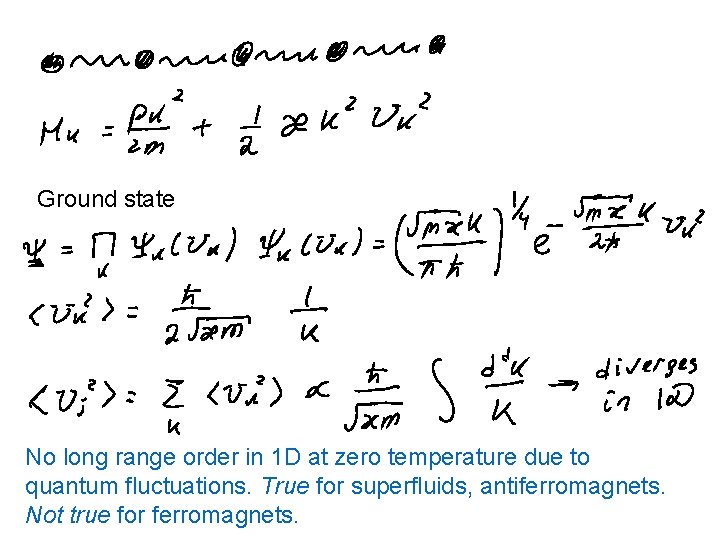 H_k = p_k^2/2m + 1/2 æ k^2 v_k^2
Ground state
Ψ = ∏_k Ψ_k(v_k) Ψ_k(v_k) = (√(mæ) k/πħ)^{1/4} e^{-√(mæ) k/2ħ v_k^2}
<v_k^2> = ħ/2√(æm) 1/k
<v_j^2> = Σ_k <v_k^2> ∝ ħ/√(æm) ∫ d^d k/k → diverges in 1D
No long range order in 1D at zero temperature due to
quantum fluctuations. True for superfluids, antiferromagnets.
Not true for ferromagnets.